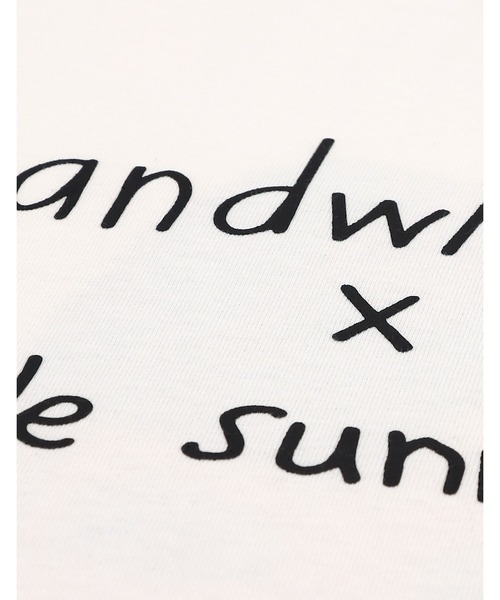 andwi
x
le sunn